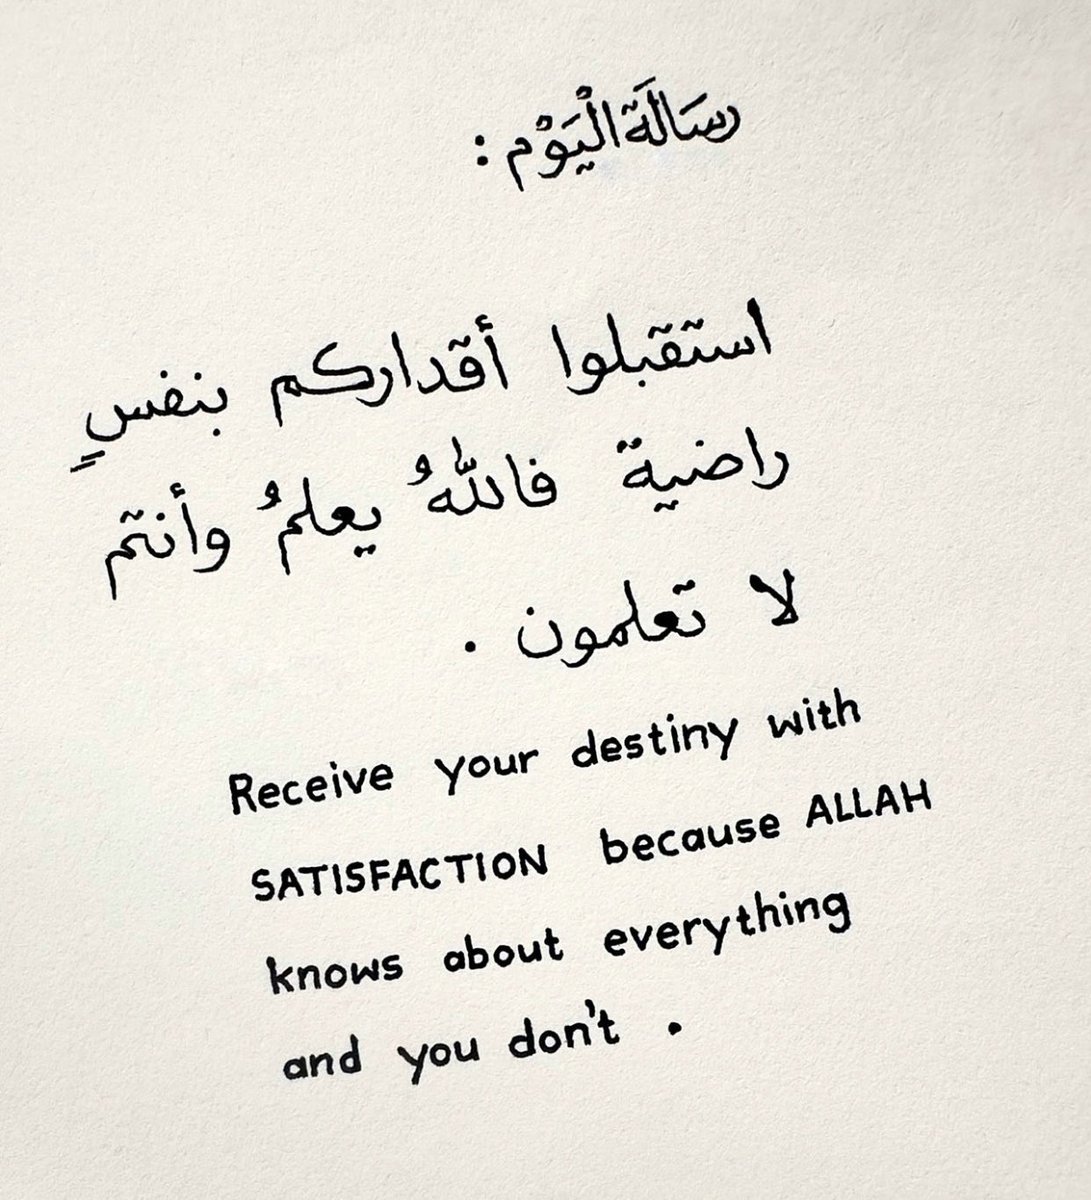 رسَالَة الْيَوْم :
استقبلوا أقداركم بنفسٍ
راضية فاللّهُ يعلمُ وأنتم
لا تعلمون .
Receive your destiny with
SATISFACTION because ALLAH
knows about everything
and you don't .